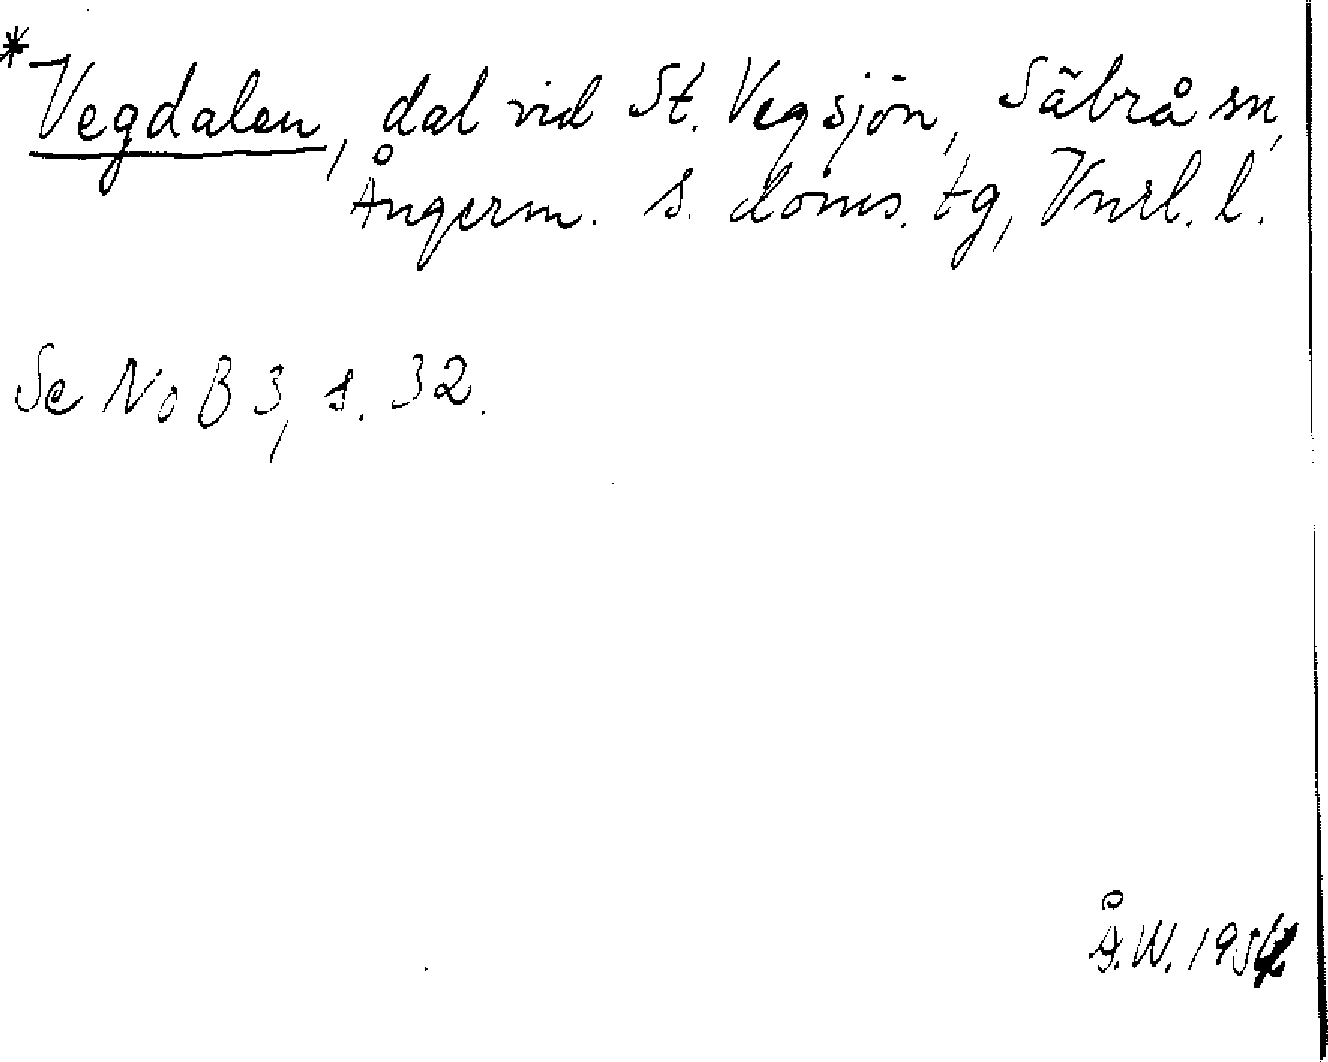 *Vegdalen, dal vid St. Vegsjön, Säbrå sn,
Ångerm. s. doms. tg, Vnrl. l.
Se NoB 3, s. 32.
Å.W. 1954